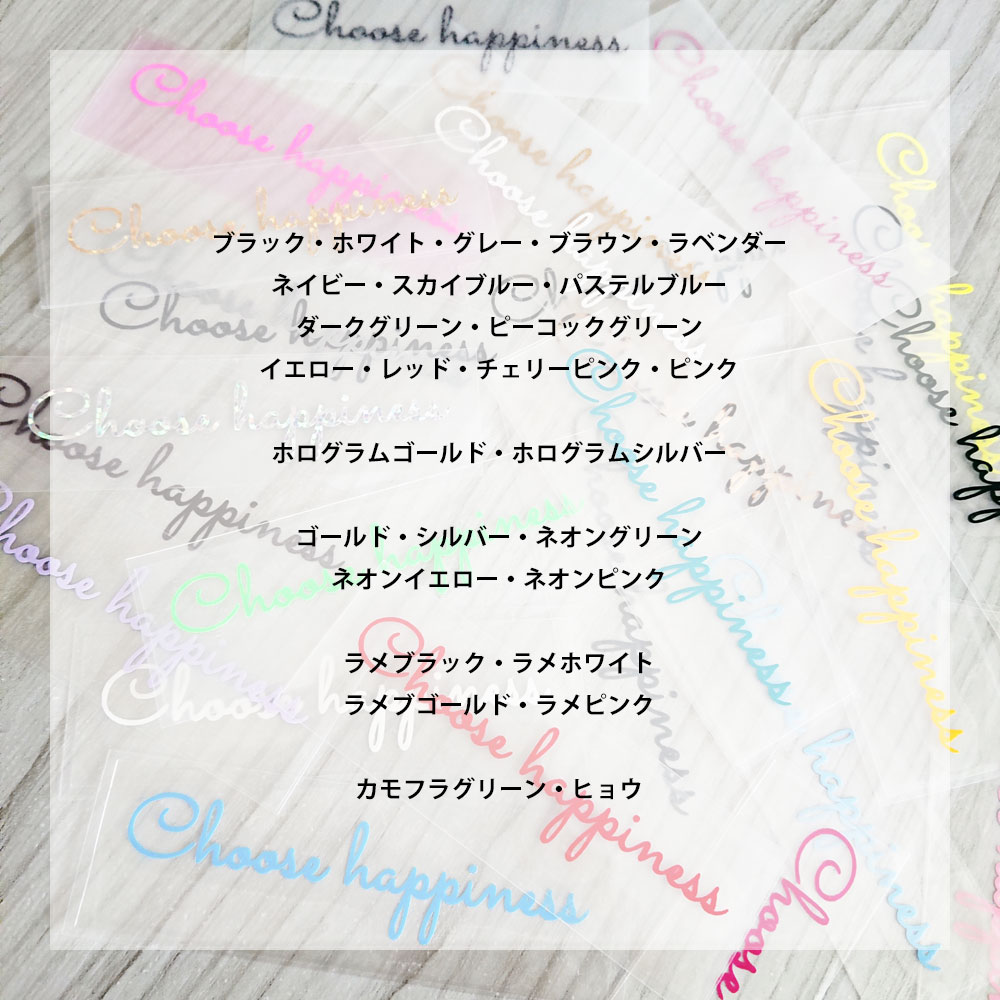 Choose happiness
Choose happiness
Choose happiness
Choose happiness
Choose happiness
Choose happiness
Choose happiness
ブラック・ホワイト・グレー・ブラウン・ラベンダー
ネイビー・スカイブルー・パステルブルー
Choose happiness
ダークグリーン・ピーコックグリーン
イエロー・レッド・チェリーピンク・ピンク
Choose happiness
Choose happiness
Choose happiness
Choose happiness
ホログラムゴールド・ホログラムシルバー
Choose happiness
Choose happiness
ゴールド・シルバー・ネオングリーン
ネオンイエロー・ネオンピンク
ラメブラック・ラメホワイト
Choose happiness
ラメブゴールド・ラメピンク
Choose happiness
カモフラグリーン・ヒョウ
happiness
Choose happiness
Choose